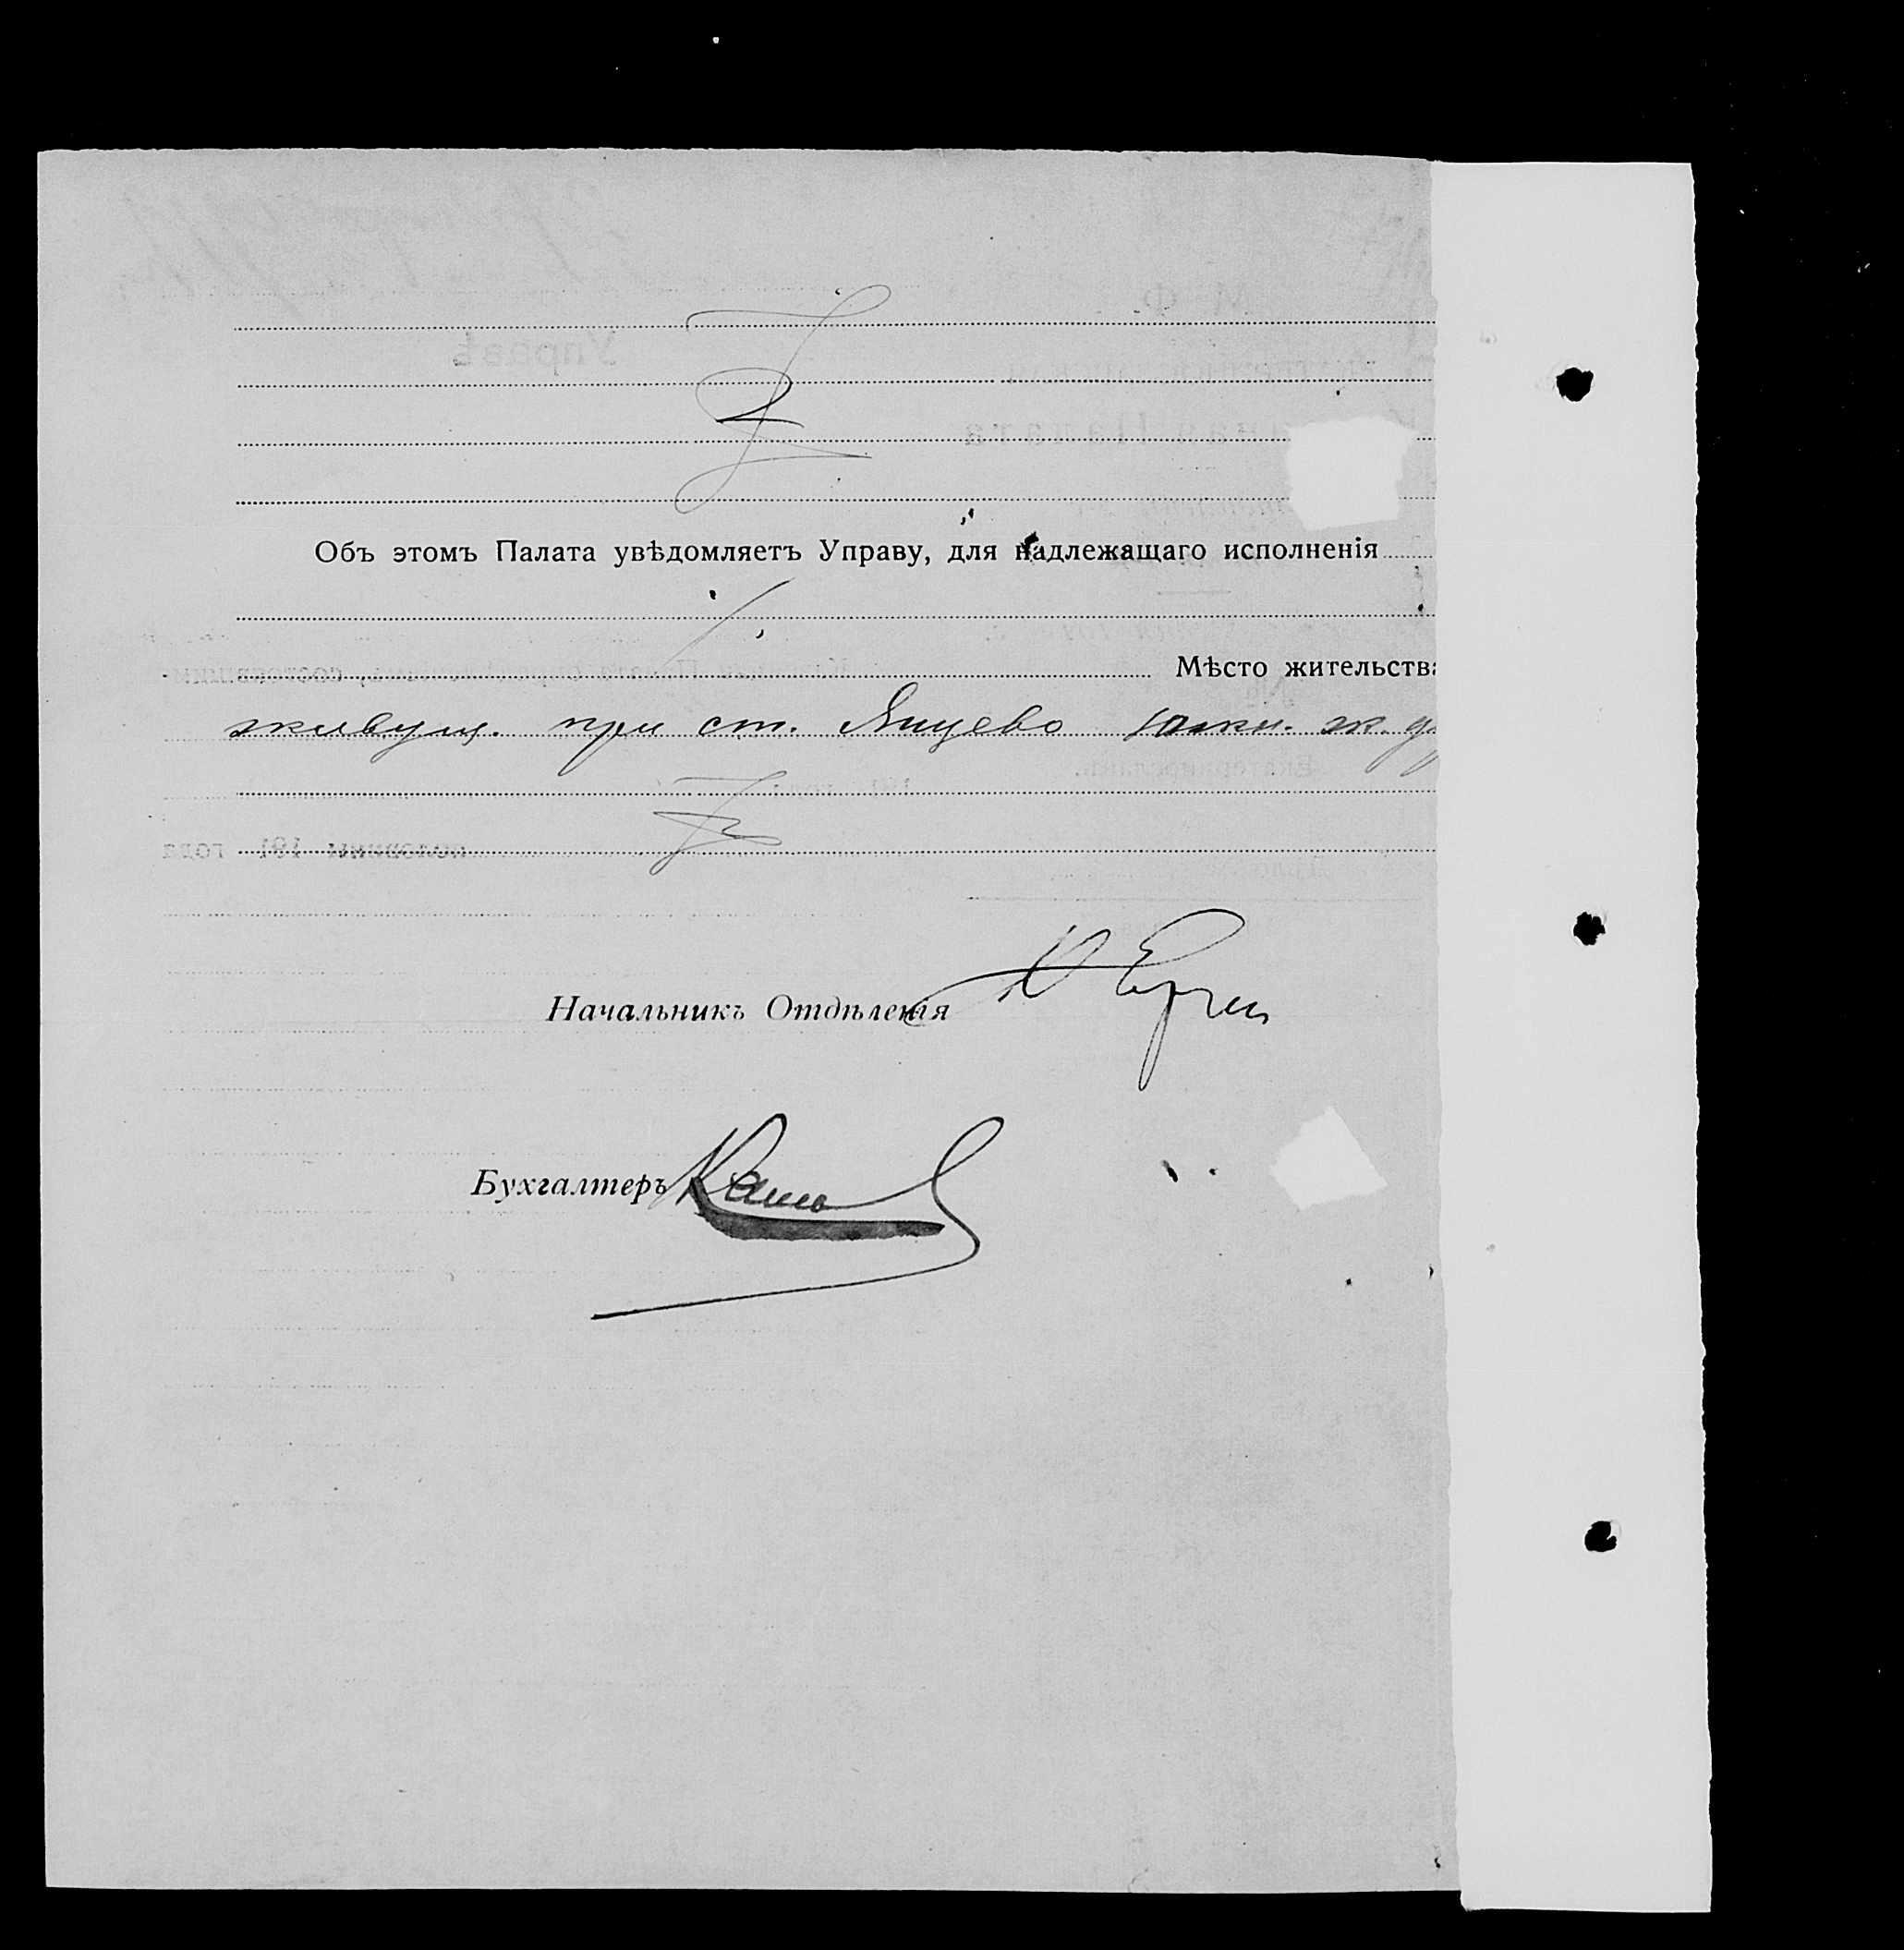 Объ этомъ Палата увѣдомляетъ Управу, для надлежащаго исполненія
Мѣсто жительства
живущ. при ст. Янцево Южн. ж. д.
Начальникъ Отдѣленія
Бухгалтеръ